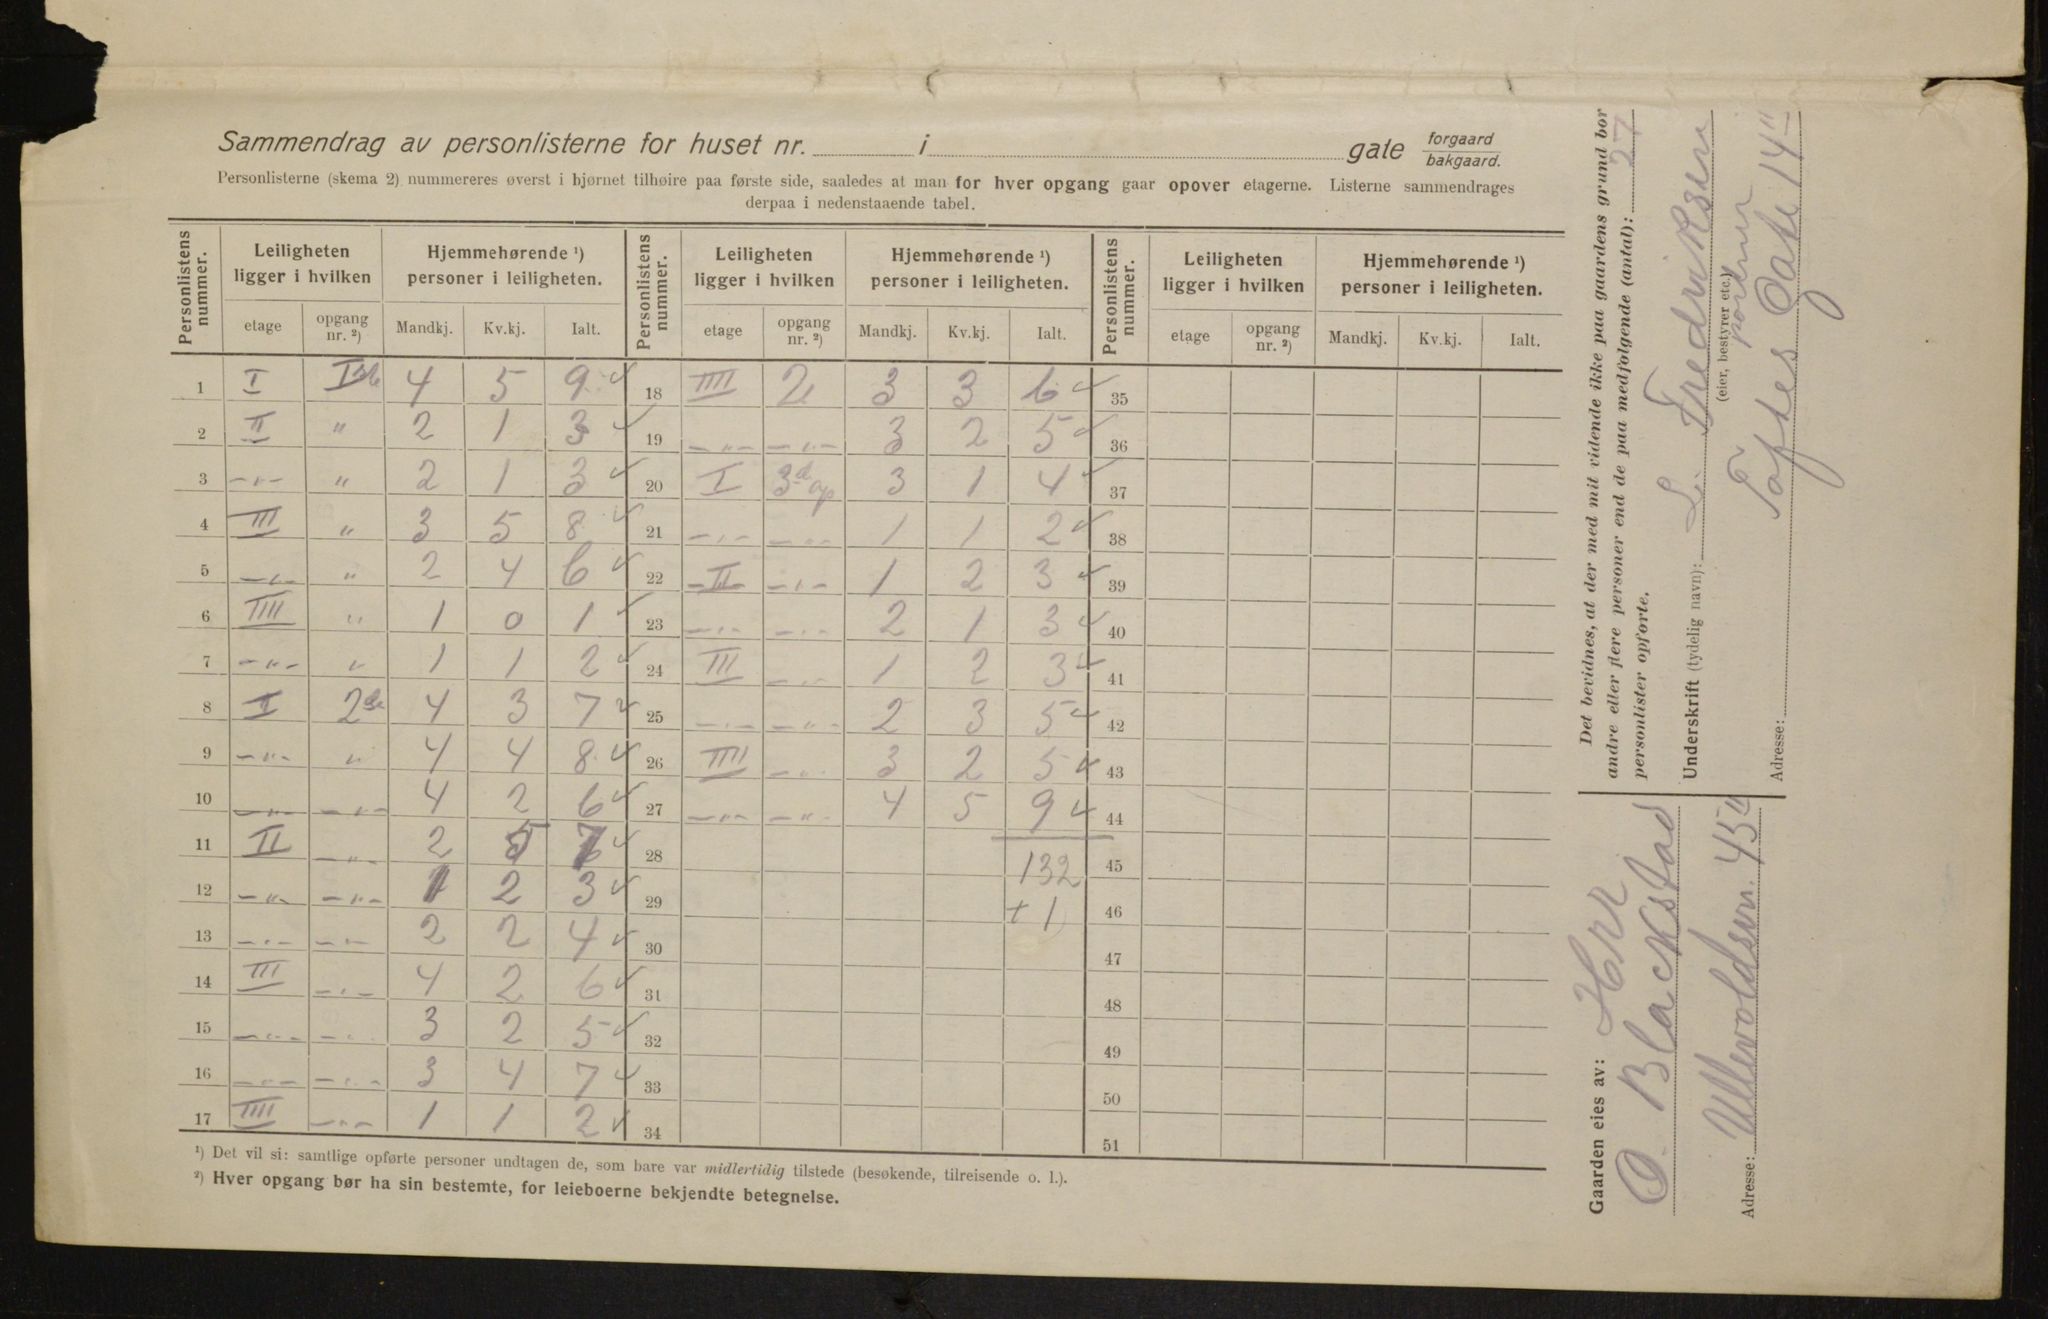 Sammendrag av personlisterne for huset nr. i gate forgaard bakgaard.
Personlisterne (skema 2) nummereres øverst i hjørnet tilhøire paa første side, saaledes at man for hver opgang gaar opover etagerne. Listerne sammendrages
derpaa i nedenstaaende tabel.
Personlistens nummer. Leiligheten ligger i hvilken Hjemmehørende ¹) personer i leiligheten. Personlistens nummer. Leiligheten ligger i hvilken Hjemmehørende ¹) personer i leiligheten. Personlistens nummer. Leiligheten ligger i hvilken Hjemmehørende ¹) personer i leiligheten.
etage opgang nr. ²) Mandkj. Kv.kj. Ialt. etage opgang nr. ²) Mandkj. Kv.kj. Ialt. etage opgang nr. ²) Mandkj. Kv.kj. Ialt.
1 I 4 5 9 ✓ 18 IIII 2 3 3 6 ✓ 35
2 II " 2 1 3 ✓ 19 —„— —„— 3 2 5 ✓ 36
3 —„— " 2 1 3 ✓ 20 I 3d op 3 1 4 ✓ 37
4 III " 3 5 8 ✓ 21 —„— —„— 1 1 2 ✓ 38
5 —„— " 2 4 6 ✓ 22 II —„— 1 2 3 ✓ 39
6 IIII " 1 0 1 ✓ 23 —„— —„— 2 1 3 ✓ 40
7 —„— " 1 1 2 ✓ 24 III —„— 1 2 3 ✓ 41
8 I 2de 4 3 7 ✓ 25 —„— —„— 2 3 5 ✓ 42
9 —„— " 4 4 8 ✓ 26 IIII —„— 3 2 5 ✓ 43
10 —„— —„— 4 2 6 ✓ 27 —„— —„— 4 5 9 ✓ 44
11 II —„— 2 5 7 ✓ 28 132 45
12 —„— —„— 1 2 3 ✓ 29 + 1 46
13 —„— —„— 2 2 4 ✓ 30 47
14 III —„— 4 2 6 ✓ 31 48
15 —„— —„— 3 2 5 ✓ 32 49
16 —„— —„— 3 4 7 ✓ 33 50
17 IIII —„— 1 1 2 ✓ 34 51
¹) Det vil si: samtlige opførte personer undtagen de, som bare var midlertidig tilstede (besøkende, tilreisende o. l.).
²) Hver opgang bør ha sin bestemte, for leieboerne bekjendte betegnelse.
Det bevidnes, at der med mit vidende ikke paa gaardens grund bor
andre eller flere personer end de paa medfølgende (antal): 27
personlister opførte.
Underskrift (tydelig navn): L. Fredriksen
(eier, bestyrer etc.)
Adresse: Toftes Gate 14"
Gaarden eies av: Hrr
O. Blackstad
Adresse: Ullevoldsvn. 45"